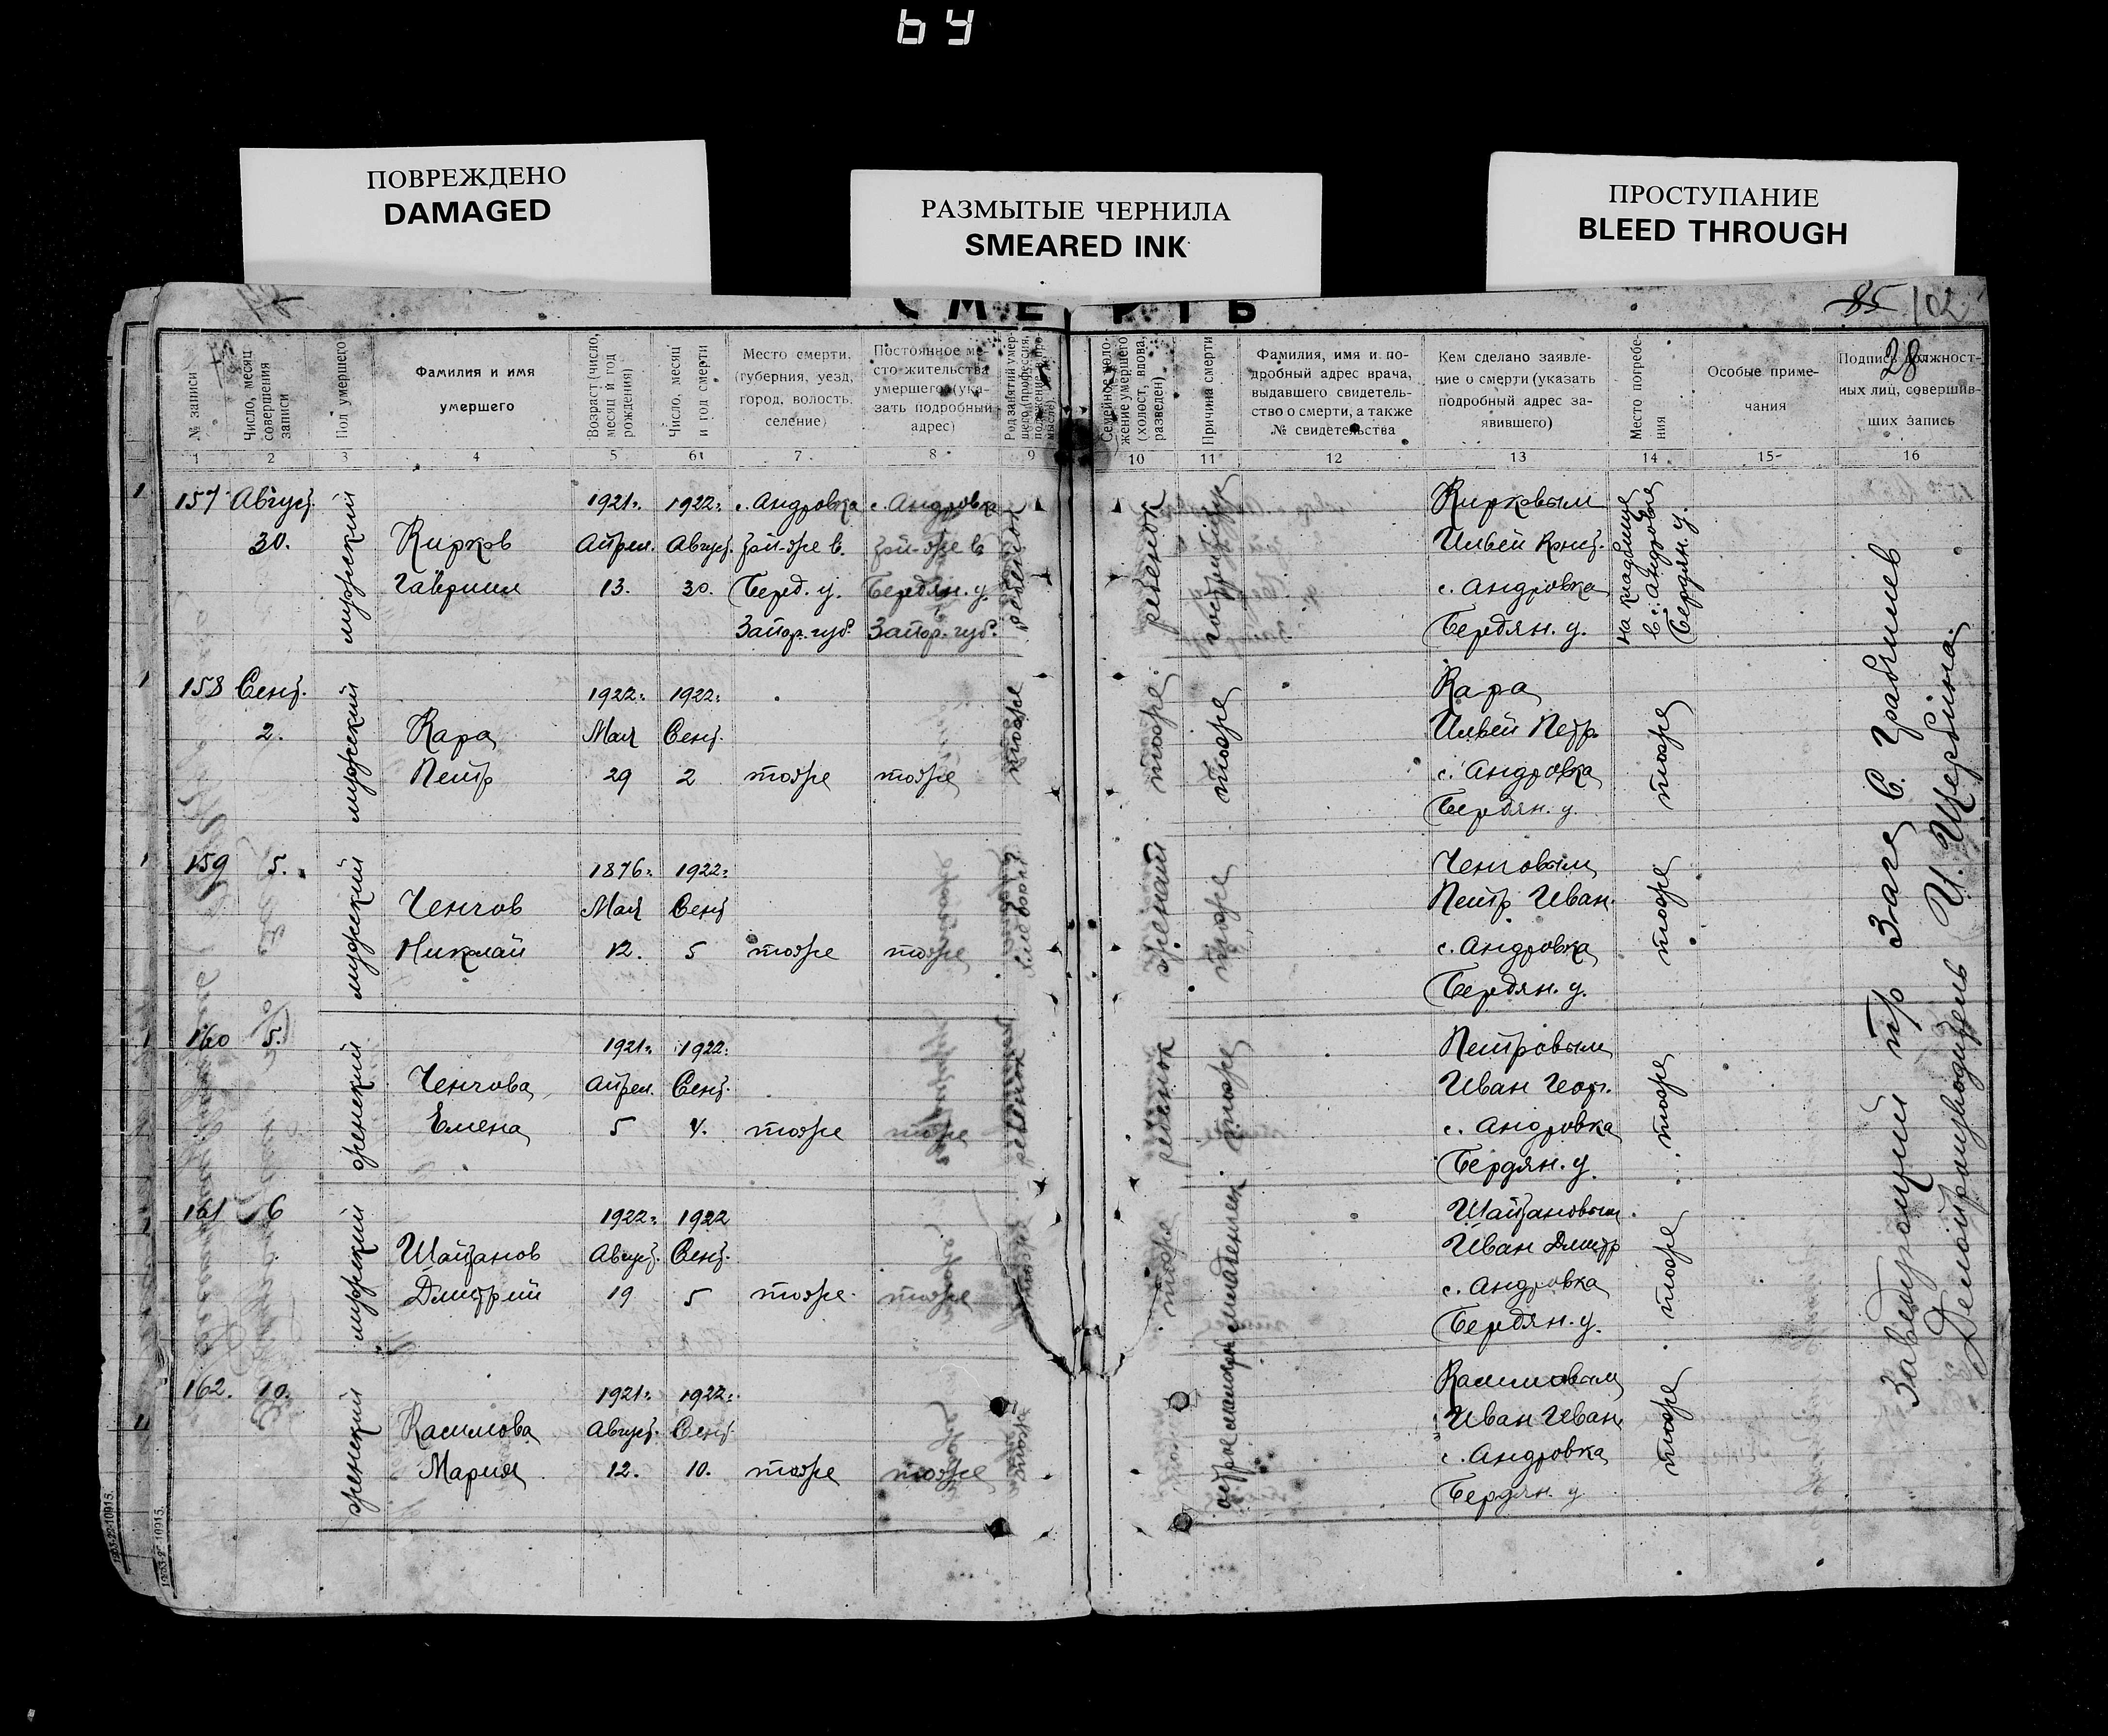 64
ПОВРЕЖДЕНО
DAMAGED
РАЗМЫТЫЕ ЧЕРНИЛА
SMEARED INK
ПРОСТУПАНИЕ
BLEED THROUGH
СМЕРТЬ
85 102
28
№ записи
Число, месяц совершения записи
Пол умершего
Фамилия и имя умершего
Возраст (число, месяц и год рождения)
Число, месяц и год смерти
Место смерти, (губерния, уезд, город, волость, селение)
Постоянное место жительства умершего (указать подробный адрес)
Семейное положение умершего (холост, вдова, разведен)
Причина смерти
Фамилия, имя и подробный адрес врача, выдавшего свидетельство о смерти, а также № свидетельства
Кем сделано заявление о смерти (указать подробный адрес заявившего)
Место погребения
Особые примечания
Подпись должностных лиц, совершивших запись
1 2 3 4 5 6 7 8 9 10 11 12 13 14 15 16
157 Август. 1921г. 1922г. с. Андровка с. Андровка Кирковым
30. Кирков Апрел. Август. Илией
Гавриил 13. 30. Берд. у. Бердян. у. с. Андровка
Запор. губ. Запор. губ. Бердян. у.
мужеский
ребенок
ребенок
на кладбище
в с. Андровке
Бердян. у.
158 Сент. 1922г. 1922г. Кара
2. Кара Мая Сент. Илией Петр.
Петр 29 2 тоже тоже с. Андровка
Бердян. у.
мужеский
тоже
тоже
тоже
тоже
159 5. 1876г. 1922г. Ченговым
Ченгов Мая Сент Петр Иван.
Николай 12. 5 тоже тоже с. Андровка
Бердян. у.
мужеский
женат
тоже
тоже
160 5. 1921г. 1922г. Петровым
Ченгова Апрел. Сент. Иван Геор.
Елена 5 4. тоже тоже с. Андровка
Бердян. у.
женский
ребенок
ребенок
тоже
тоже
161 6 1922г. 1922 Шайтановым
Шайтанов Август. Сент. Иван Дмитр
Дмитрий 19 5 тоже тоже с. Андровка
Бердян. у.
мужеский
тоже
тоже
162. 10. 1921г. 1922г. Касимовым
Касимова Август. Сент. Иван Иван.
Мария 12. 10. тоже тоже с. Андровка
Бердян. у
женский
тоже
Заведующий Загс С.
Делопроизводитель И. Щербина